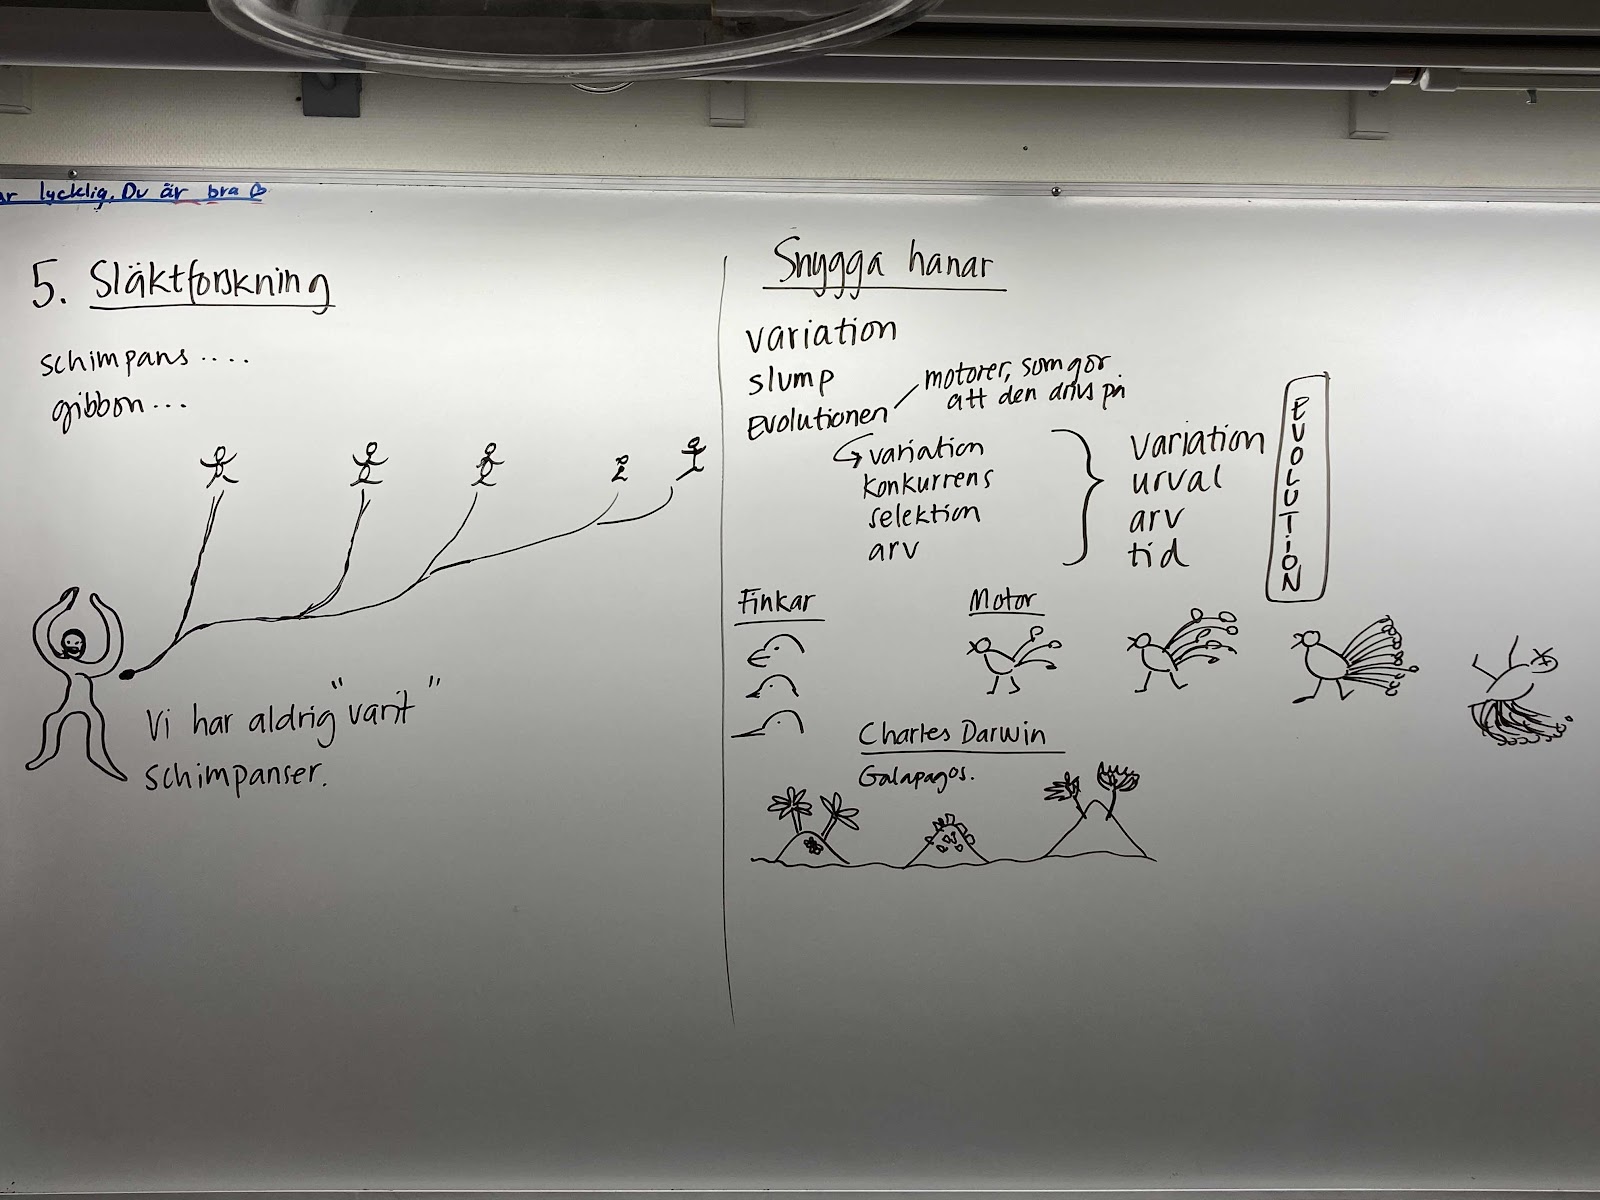 ar lycklig. Du är bra
5. Släktforskning
schimpans ....
gibbon ...
Vi har aldrig "varit"
schimpanser.
Snygga hanar
variation
slump
Evolutionen
motorer, som gör
att den drivs på
variation
konkurrens
selektion
arv
variation
urval
arv
tid
EVOLUTiON
Finkar
Motor
Charles Darwin
Galapagos.